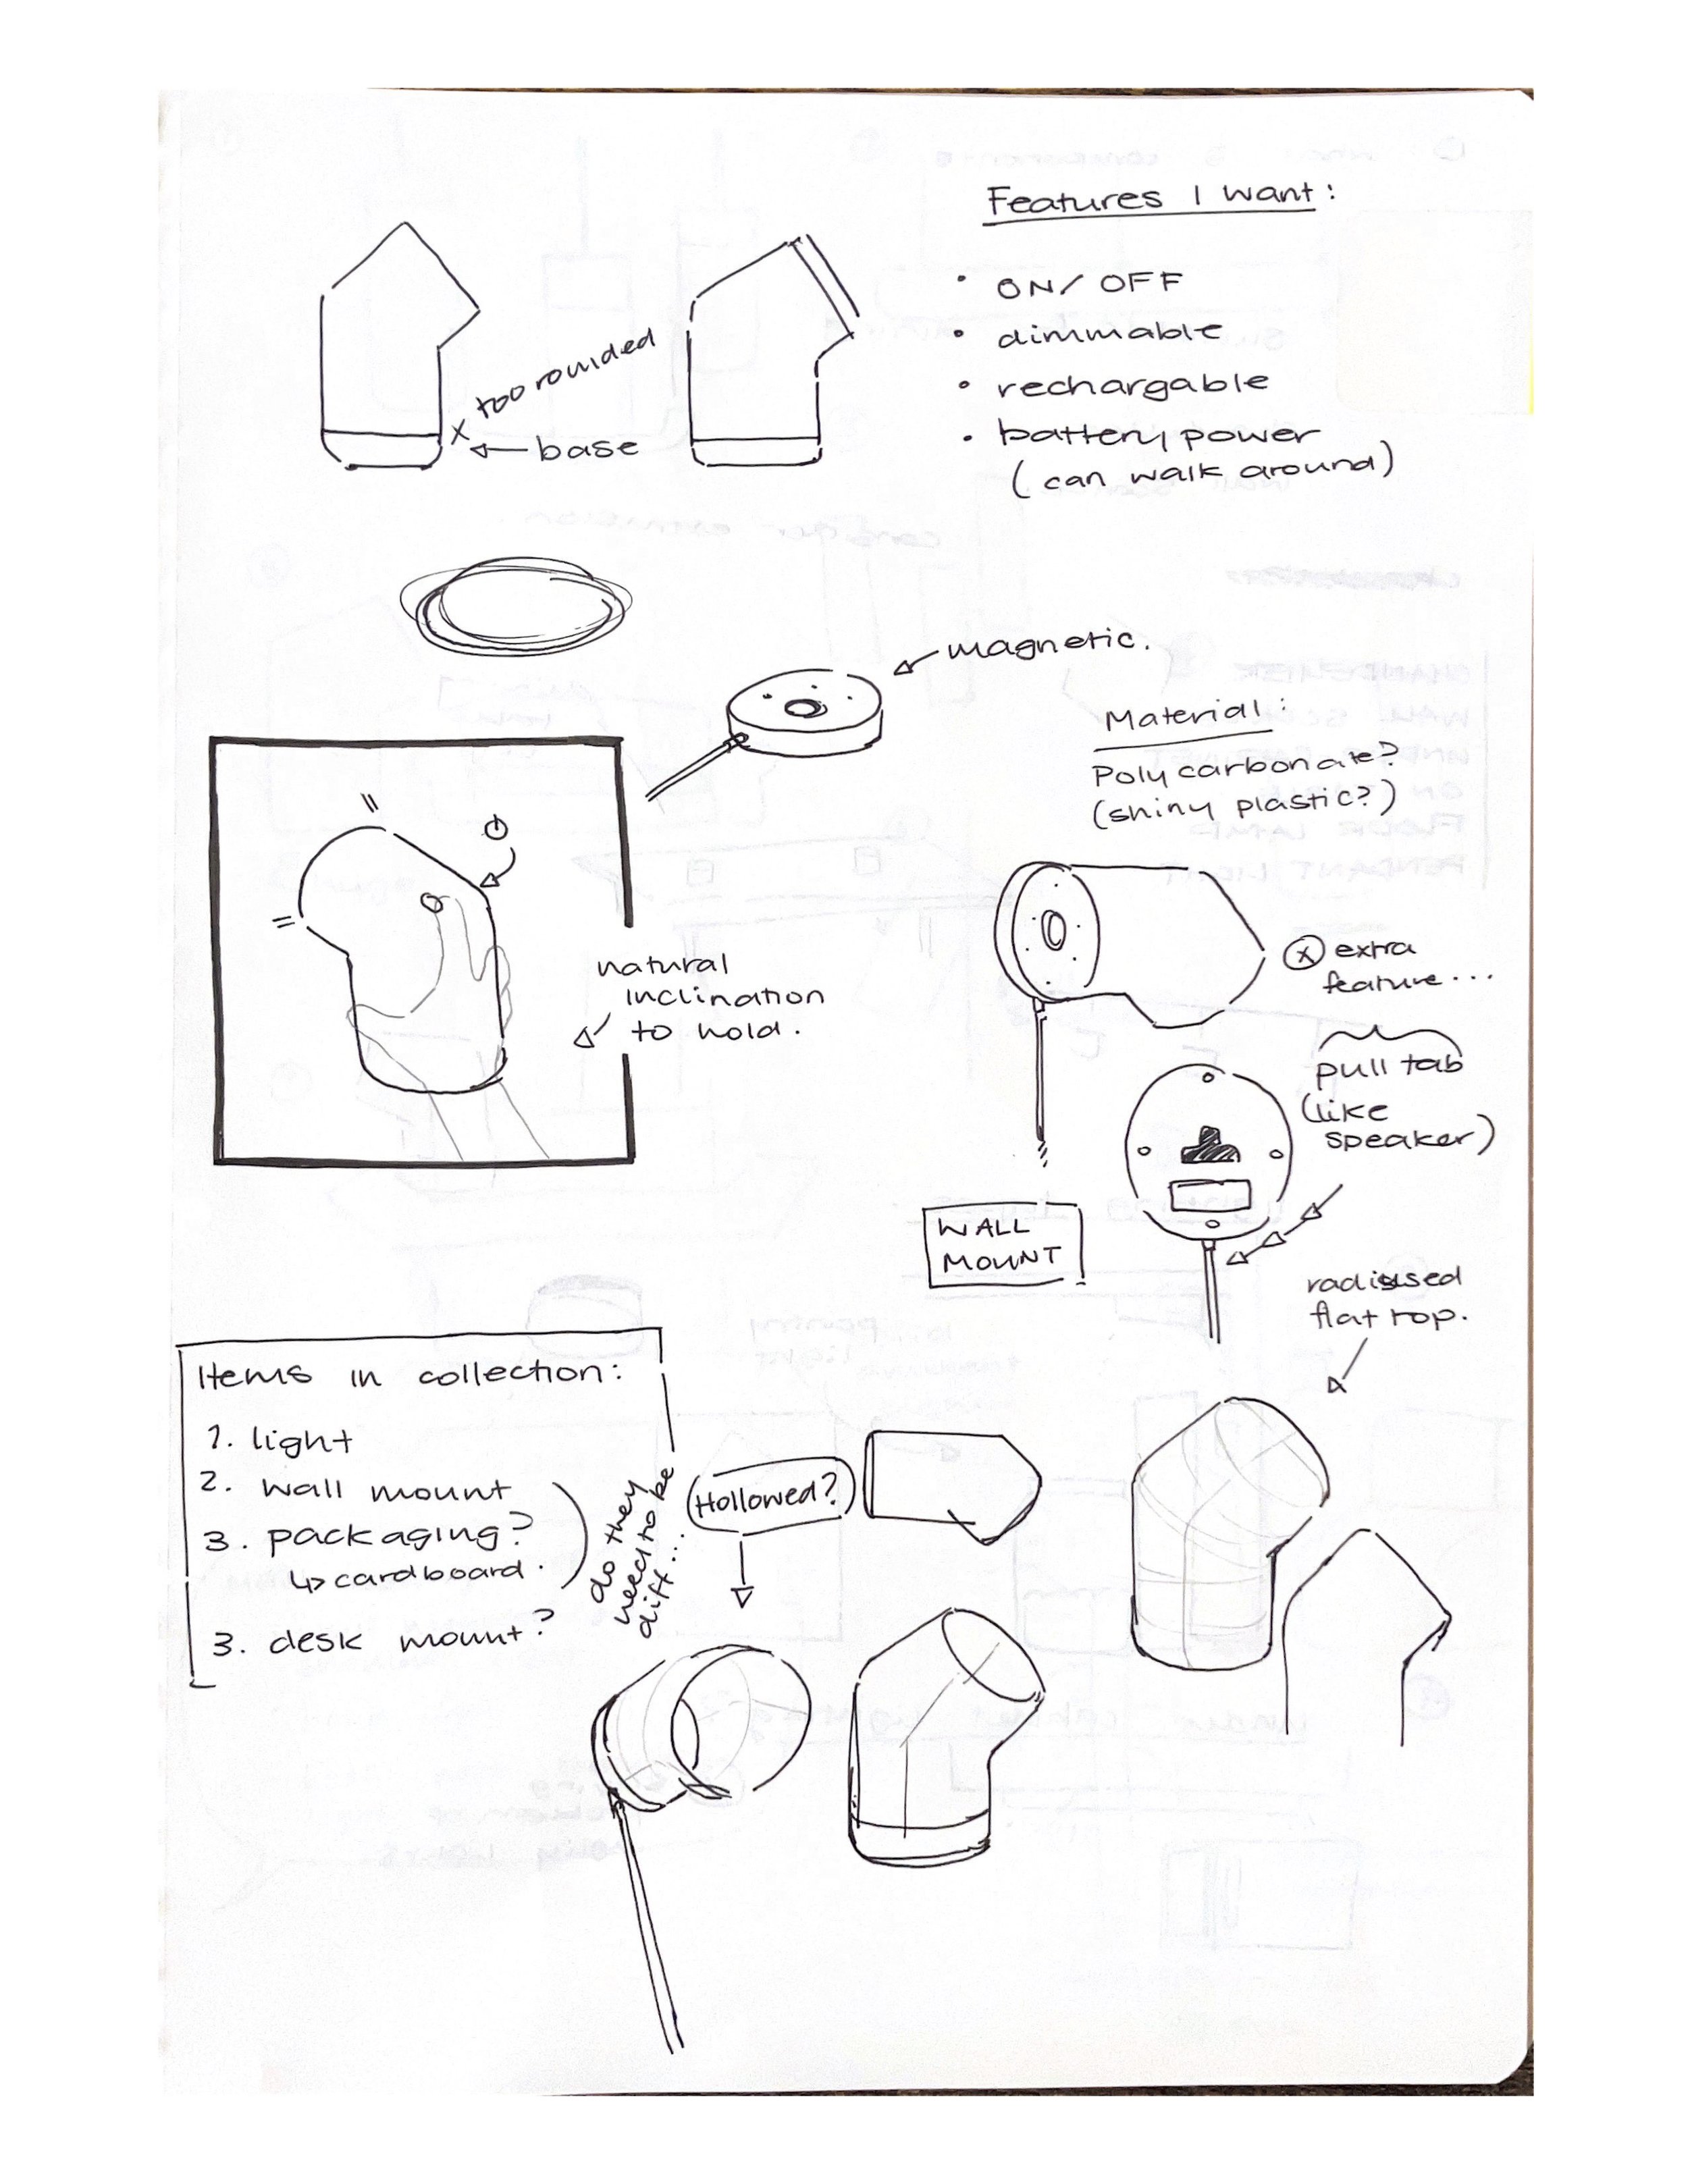 Features I want:
• ON/OFF
• dimmable
• rechargable
• battery power
(can walk around)
x too rounded
← base
magnetic.
Material:
Polycarbonate?
(shiny plastic?)
natural
inclination
to hold.
x extra
feature...
pull tab
(like
speaker)
WALL
MOUNT
radiused
flat top.
Items in collection:
1. light
2. wall mount
3. packaging?
↳ cardboard.
3. desk mount?
do they
need to be
diff...
Hollowed?